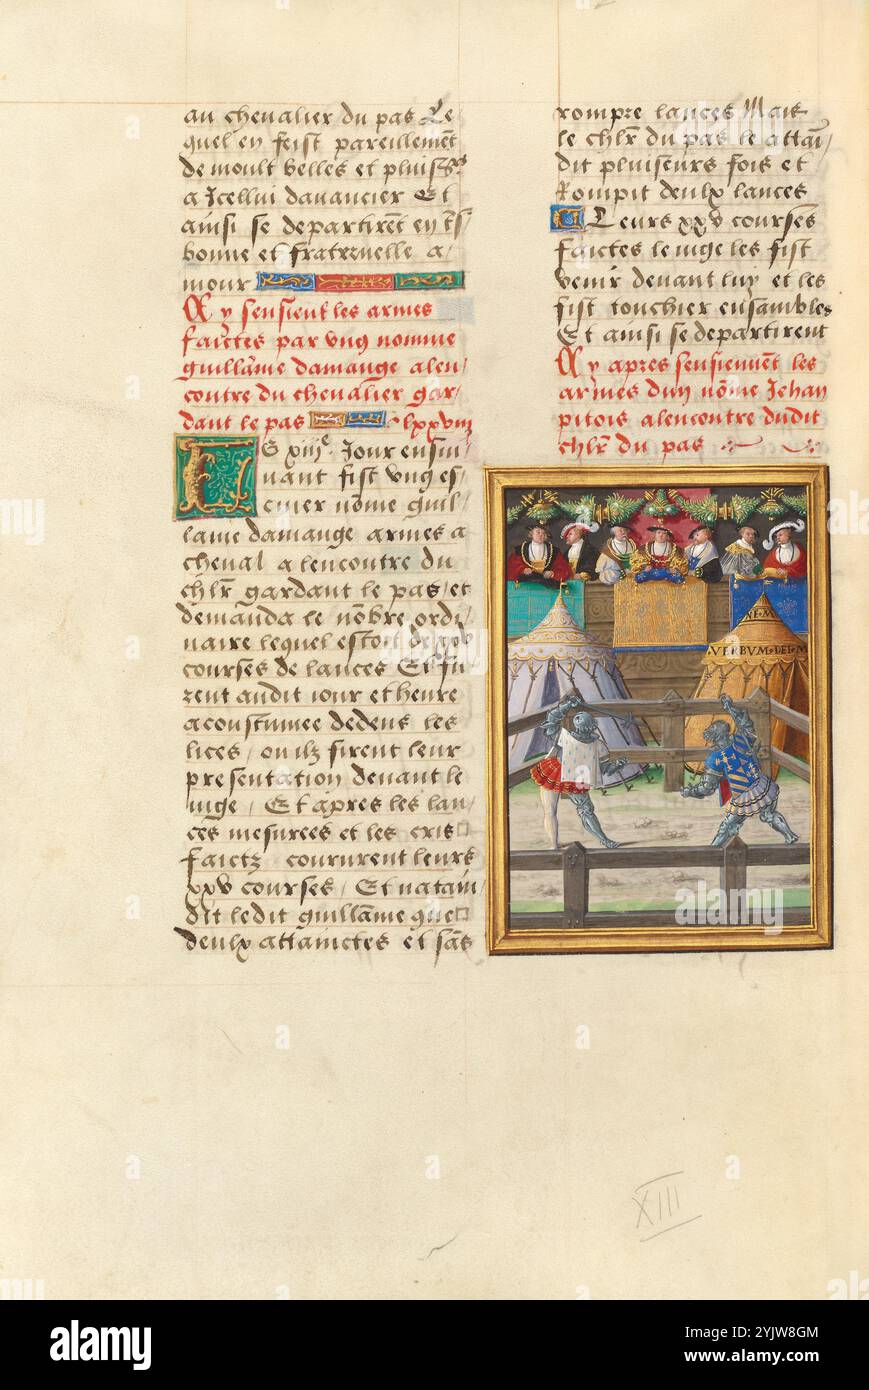 au chevalier du pas Le
quel en feist pareillemēt
de moult belles et pluiss
a Icellui davancier Et
ainsi se departirēt en
bonne et fraternelle a
mour
Cy sensieut les armes
faictes par ung nomme
guillāme damange alen
contre du chevalier gar
dant le pas lxxviij
LE xiiie Jour ensui
vant fist ung es
cuier nōme guil
lāme damange armes a
cheval a lencontre du
chlr gardant le pas / et
demanda le nōbre ordi
naire lequel estoit de xxv
courses de lances Et fu
rent audit iour et heure
acoustumee dedens les
lices / ou ilz firent leur
presentation devant le
iuge / Et apres les lan
ces mesurees et les cris
faictz coururent leurs
xxv courses / Et natain
dit ledit guillāme que
deulx attainctes et sās
rompre lances Mais
le chlr du pas le attai
dit pluiseurs fois et
Rompit deulx lances
Leurs xxv courses
faictes le iuge les fist
venir devant luy et les
fist touchier ensambles
Et ainsi se departirent
Cy apres sensievuent les
armes dun nōme Jehan
pitois alencontre dudit
chlr du pas
VERBVM DEI M
XIII
alamy
Image ID: 2YJW8GM
www.alamy.com